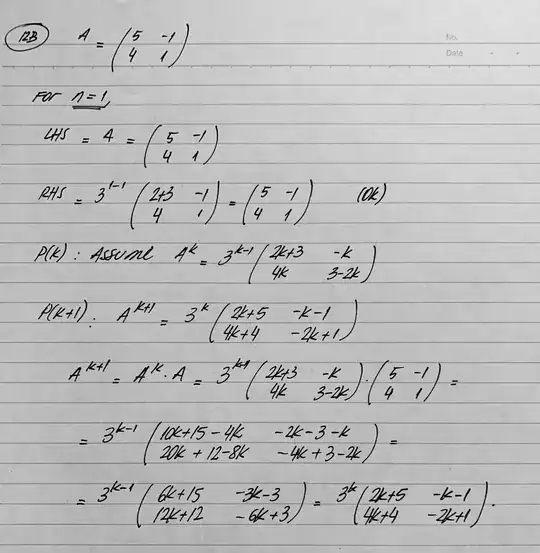 12B A = (5 -1
4 1)
No.
Date
For n=1,
LHS = A = (5 -1
4 1)
RHS = 3^(1-1) (2+3 -1
4 1) = (5 -1
4 1) (Ok)
P(k) : Assume A^k = 3^(k-1) (2k+3 -k
4k 3-2k)
P(k+1) : A^(k+1) = 3^k (2k+5 -k-1
4k+4 -2k+1)
A^(k+1) = A^k · A = 3^(k-1) (2k+3 -k
4k 3-2k) · (5 -1
4 1) =
= 3^(k-1) (10k+15-4k -2k-3-k
20k+12-8k -4k+3-2k) =
= 3^(k-1) (6k+15 -3k-3
12k+12 -6k+3) = 3^k (2k+5 -k-1
4k+4 -2k+1).